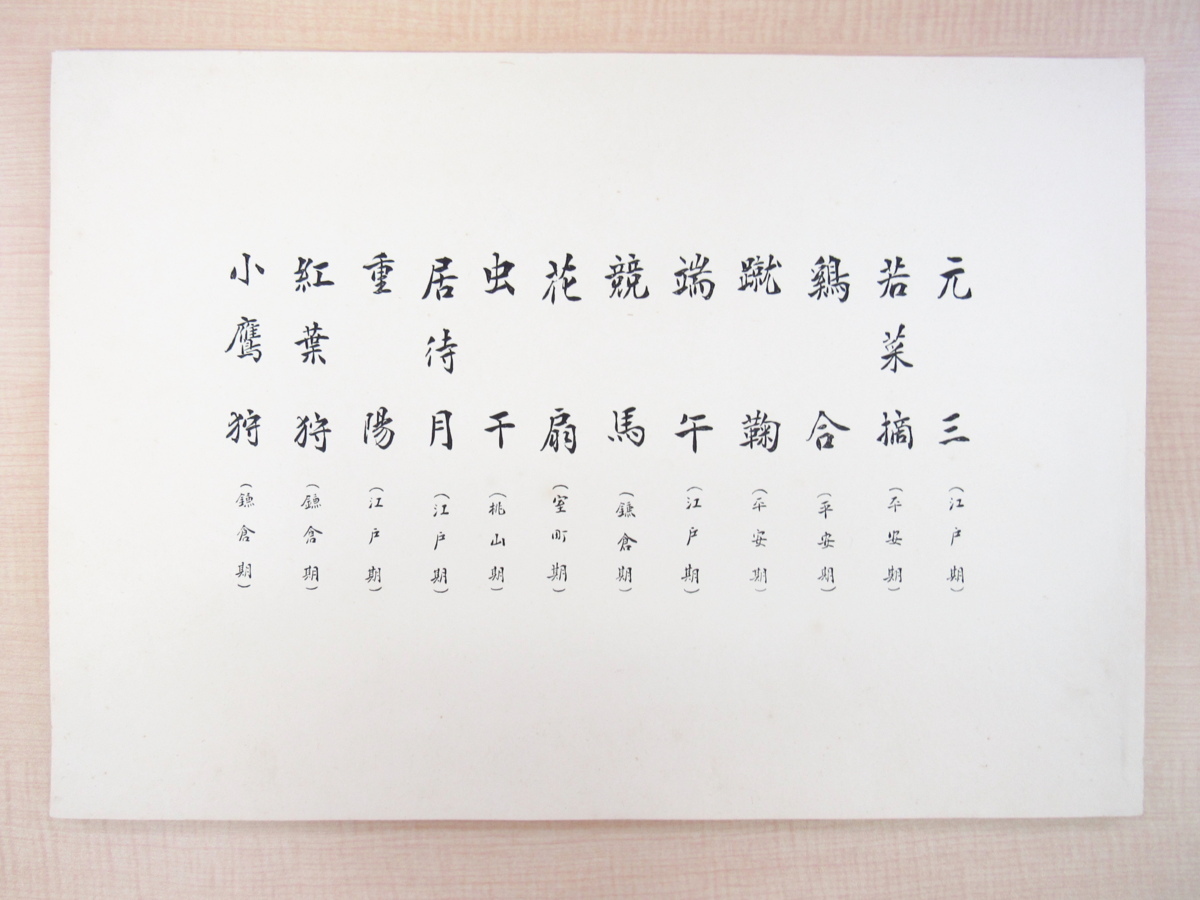 元三（江戸期）
若菜摘（平安期）
鷄合（平安期）
蹴鞠（平安期）
端午（江戸期）
競馬（鎌倉期）
花扇（室町期）
虫干（桃山期）
居待月（江戸期）
重陽（江戸期）
紅葉狩（鎌倉期）
小鷹狩（鎌倉期）